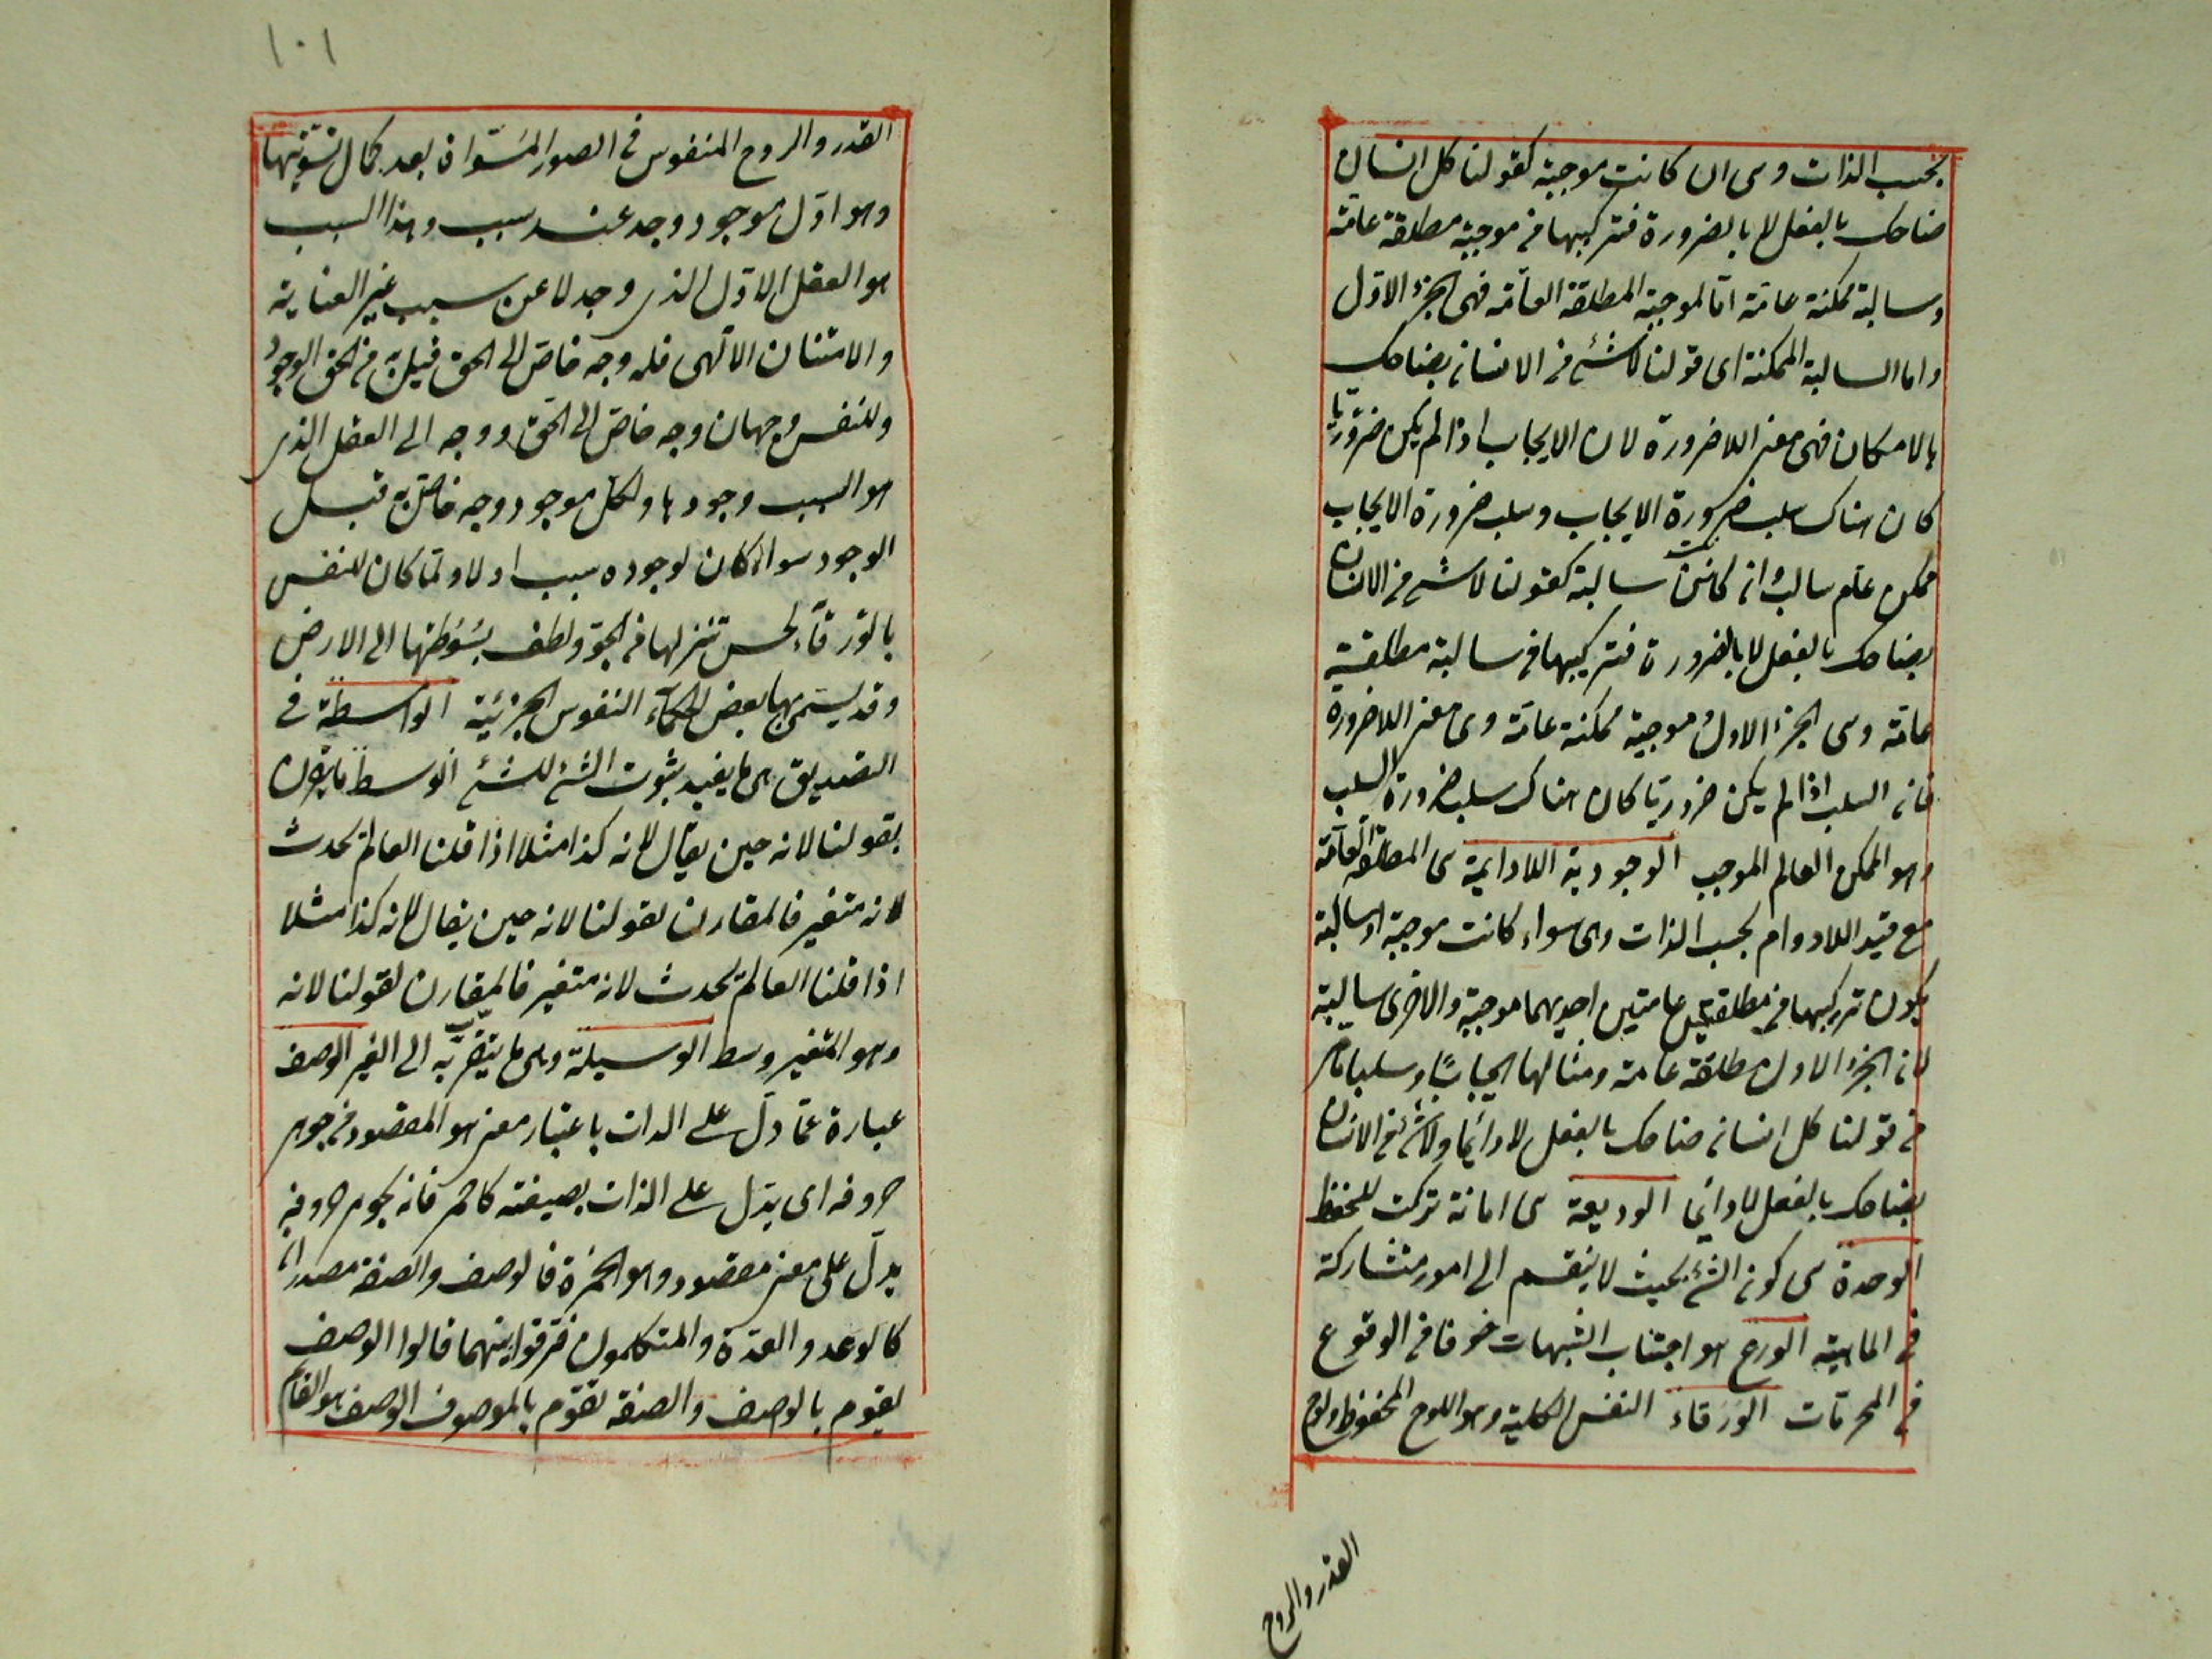 بحسب الذات وهى ان كانت موجبة كقولنا كل انسان
ضاحك بالفعل لا بالضرورة فتركيبها من موجبة مطلقة عامة
وسالبة ممكنة عامة اما الموجبة المطلقة العامة فهى الجزء الاول
واما السالبة الممكنة اى قولنا لا شئ من الانسان بضاحك
بالامكان فهى معنى اللاضرورة لان الايجاب اذا لم يكن ضروريا
كان هناك سلب ضرورة الايجاب وسلب ضرورة الايجاب
ممكن عام سالب وان كانت سالبة كقولنا لا شئ من الانسان
بضاحك بالفعل لا بالضرورة فتركيبها من سالبة مطلقة
عامة وهى الجزء الاول وموجبة ممكنة عامة وهى معنى اللاضرورة
فان السلب اذا لم يكن ضروريا كان هناك سلب ضرورة السلب
وهو الممكن العام الموجب الوجودية اللادايمة هى المطلقة العامة
مع قيد اللادوام بحسب الذات وهى سواء كانت موجبة او سالبة
يكون تركيبها من مطلقتين عامتين احديهما موجبة والاخرى سالبة
لان الجزء الاول مطلقة عامة ومثالها ايجابا وسلبا مامر
من قولنا كل انسان ضاحك بالفعل لا دائما ولا شئ من الانسان
بضاحك بالفعل لا دائما الوديعة هى امانة تركت للحفظ
الوحدة هى كون الشئ بحيث لا ينقسم الى امور متشاركة
فى الماهية الورع هو اجتناب الشبهات خوفا من الوقوع
فى المحرمات الورقاء النفس الكلية وهو اللوح المحفوظ ولوح
القدر والروح
١٠١
القدر والروح المنفوس فى الصور المسواة بعد كمال تسويتها
وهو اول موجود وجد عند سبب وهذا السبب
هو العقل الاول الذى وجد لا عن سبب غير العناية
والامتنان الالهى فله وجه خاص الى الحق قبل به من الحق الوجود
وللنفس وجهان وجه خاص الى الحق ووجه الى العقل الذى
هو السبب وجودها ولكل موجود وجه خاص به قبل
الوجود سواء كان لوجوده سبب او لا ولما كان للنفس
بالورقاء لحسن تنزلها من الجو ولطف بسوطتها الى الارض
وقد يسمى بها بعض الحكماء النفوس الجزئية الواسطة فى
التصديق هى ما يفيد بثبوت الشئ للشئ الوسط ما يقرن
بقولنا لانه حين يقال لانه كذا مثلا اذا قلنا العالم محدث
لانه متغير فالمقارن لقولنا لانه حين يقال لانه كذا مثلا
اذا قلنا العالم محدث لانه متغير فالمقارن لقولنا لانه
وهو المتغير وسط الوسيلة وهى ما يتقرب به الى الغير الوصف
عبارة عما دل على الذات باعتبار معنى هو المقصود من جوهر
حروفه اى يدل على الذات بصيغته كاحمر فانه بجوهر حروفه
يدل على معنى مقصود وهو الحمرة فالوصف والصفة مصدران
كالوعد والعدة والمتكلمون فرقوا بينهما فقالوا الوصف
يقوم بالواصف والصفة تقوم بالموصوف الوصف هو القائم